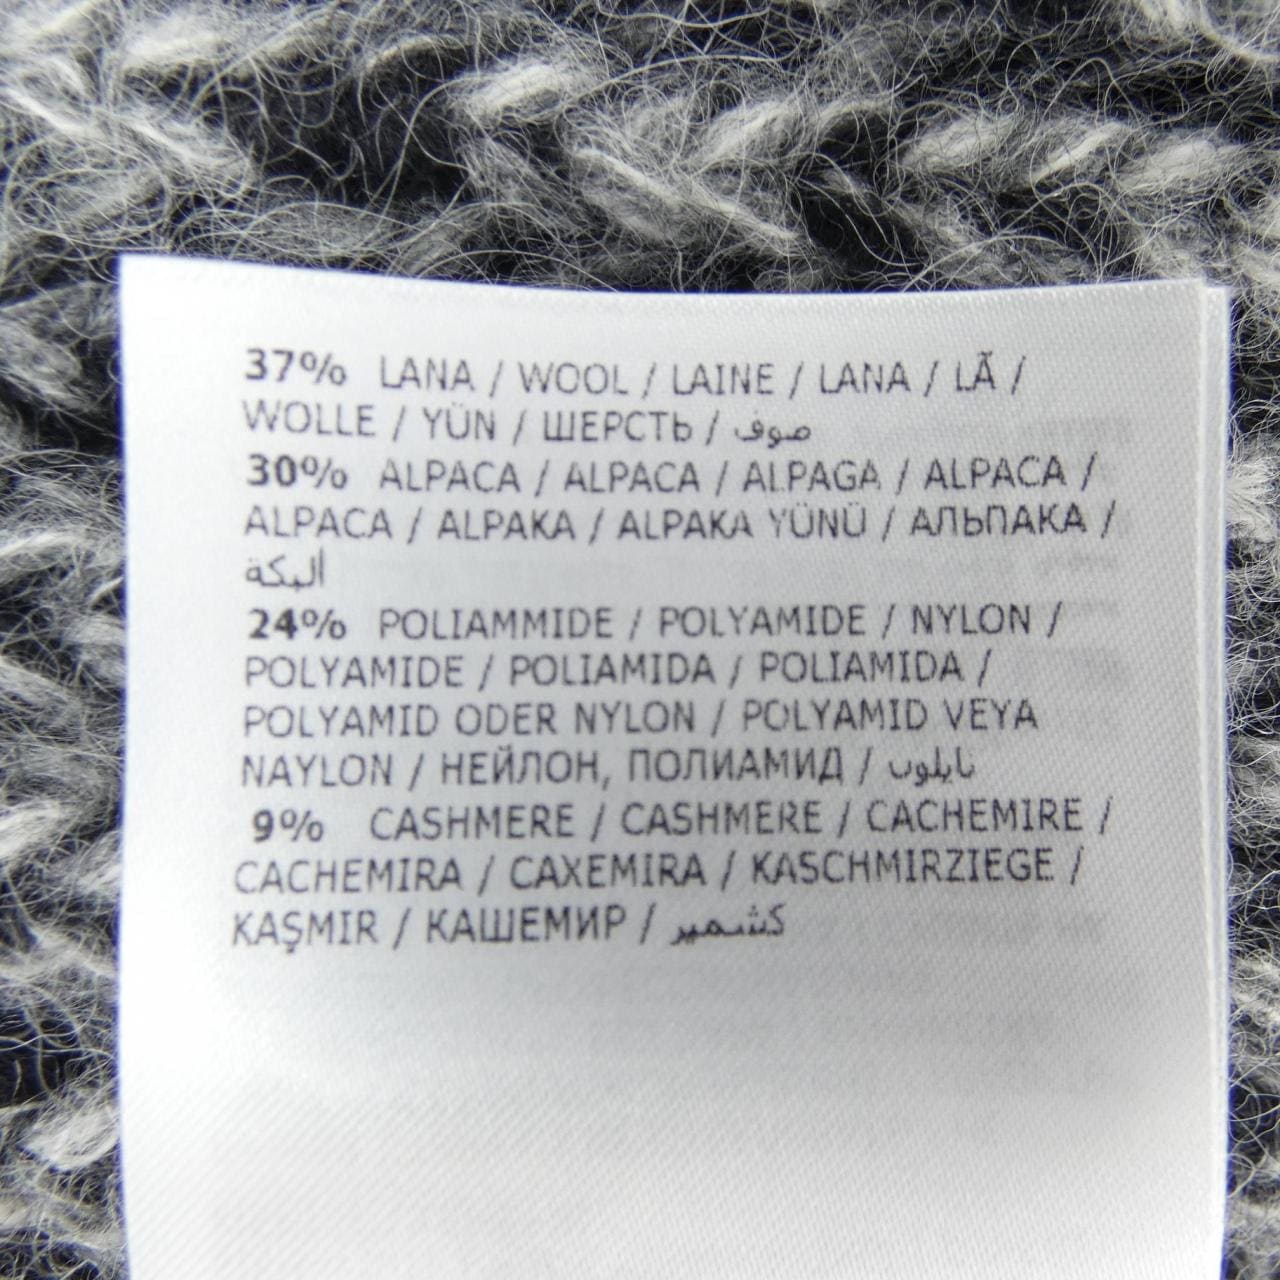 37% LANA / WOOL / LAINE / LANA / LÃ /
WOLLE / YÜN / ШЕРСТЬ / صوف
30% ALPACA / ALPACA / ALPAGA / ALPACA /
ALPACA / ALPAKA / ALPAKA YÜNÜ / АЛЬПАКА /
ألبكة
24% POLIAMMIDE / POLYAMIDE / NYLON /
POLYAMIDE / POLIAMIDA / POLIAMIDA /
POLYAMID ODER NYLON / POLYAMID VEYA
NAYLON / НЕЙЛОН, ПОЛИАМИД / نايلون
9% CASHMERE / CASHMERE / CACHEMIRE /
CACHEMIRA / CAXEMIRA / KASCHMIRZIEGE /
KAŞMIR / КАШЕМИР / كشمير